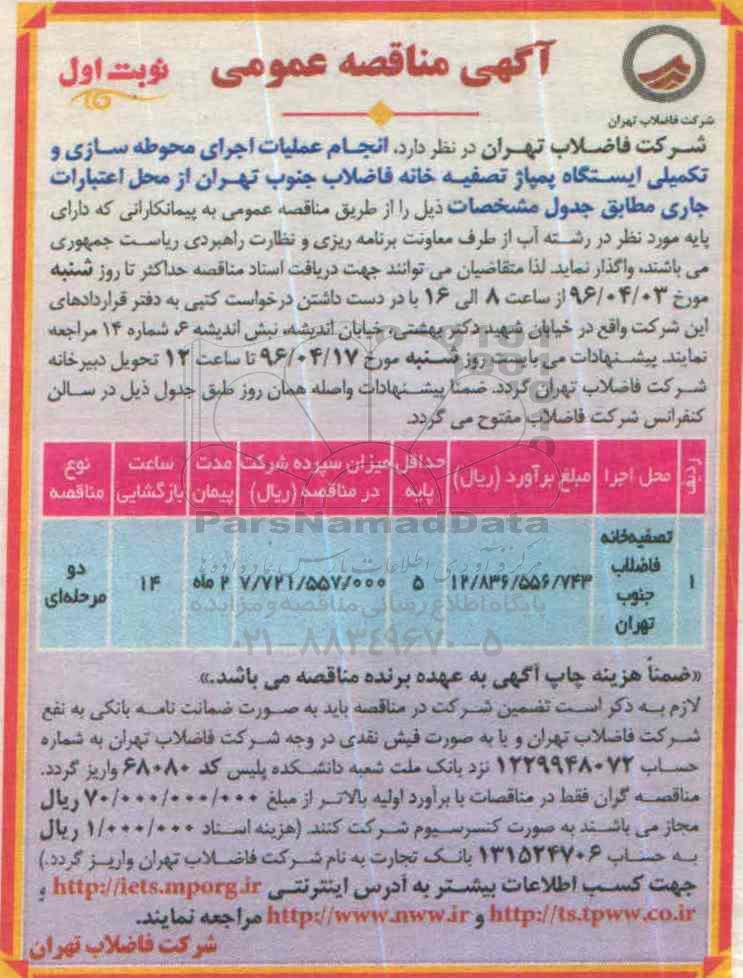 آگهی مناقصه عمومی
نوبت اول
شرکت فاضلاب تهران
شرکت فاضلاب تهران در نظر دارد، انجام عملیات اجرای محوطه سازی و
تکمیلی ایستگاه پمپاژ تصفیه خانه فاضلاب جنوب تهران از محل اعتبارات
جاری مطابق جدول مشخصات ذیل را از طریق مناقصه عمومی به پیمانکارانی که دارای
پایه مورد نظر در رشته آب از طرف معاونت برنامه ریزی و نظارت راهبردی ریاست جمهوری
می باشند، واگذار نماید. لذا متقاضیان می توانند جهت دریافت اسناد مناقصه حداکثر تا روز شنبه
مورخ ۹۶/۰۴/۰۳ از ساعت ۸ الی ۱۶ با در دست داشتن درخواست کتبی به دفتر قراردادهای
این شرکت واقع در خیابان شهید دکتر بهشتی، خیابان اندیشه، نبش اندیشه ۶، شماره ۱۴ مراجعه
نمایند. پیشنهادات می بایست روز شنبه مورخ ۹۶/۰۴/۱۷ تا ساعت ۱۲ تحویل دبیرخانه
شرکت فاضلاب تهران گردد. ضمنا پیشنهادات واصله همان روز طبق جدول ذیل در سالن
کنفرانس شرکت فاضلاب مفتوح می گردد.
ردیف محل اجرا مبلغ برآورد (ریال) حداقل پایه میزان سپرده شرکت در مناقصه (ریال) مدت پیمان ساعت بازگشایی نوع مناقصه
۱ تصفیه‌خانه فاضلاب جنوب تهران ۱۲/۸۳۶/۵۵۶/۷۴۳ ۵ ۷/۷۲۱/۵۵۷/۰۰۰ ۲ ماه ۱۴ دو مرحله‌ای
ParsNamadData
مرکز فرآوری اطلاعات پارس نماد داده ها
پایگاه اطلاع رسانی مناقصه و مزایده
۰۲۱-۸۸۳۴۹۶۷۰-۵
«ضمناً هزینه چاپ آگهی به عهده برنده مناقصه می باشد.»
لازم به ذکر است تضمین شرکت در مناقصه باید به صورت ضمانت نامه بانکی به نفع
شرکت فاضلاب تهران و یا به صورت فیش نقدی در وجه شرکت فاضلاب تهران به شماره
حساب ۱۲۲۹۹۴۸۰۷۲ نزد بانک ملت شعبه دانشکده پلیس کد ۶۸۰۸۰ واریز گردد.
مناقصه گران فقط در مناقصات با برآورد اولیه بالاتر از مبلغ ۷۰/۰۰۰/۰۰۰/۰۰۰ ریال
مجاز می باشند به صورت کنسرسیوم شرکت کنند. (هزینه اسناد ۱/۰۰۰/۰۰۰ ریال
به حساب ۱۳۱۵۲۴۷۰۶ بانک تجارت به نام شرکت فاضلاب تهران واریز گردد.)
جهت کسب اطلاعات بیشتر به آدرس اینترنتی http://iets.mporg.ir و
http://ts.tpww.co.ir و http://www.nww.ir مراجعه نمایند.
شرکت فاضلاب تهران